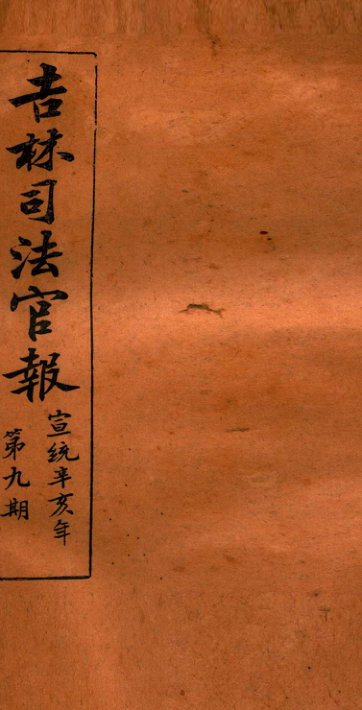 吉林司法官報
宣統辛亥年
第九期